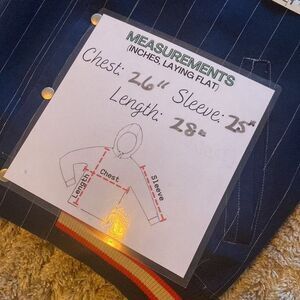 MEASUREMENTS
(INCHES, LAYING FLAT)
Chest: 26" Sleeve: 25"
Length: 28"
Chest
Length
Sleeve